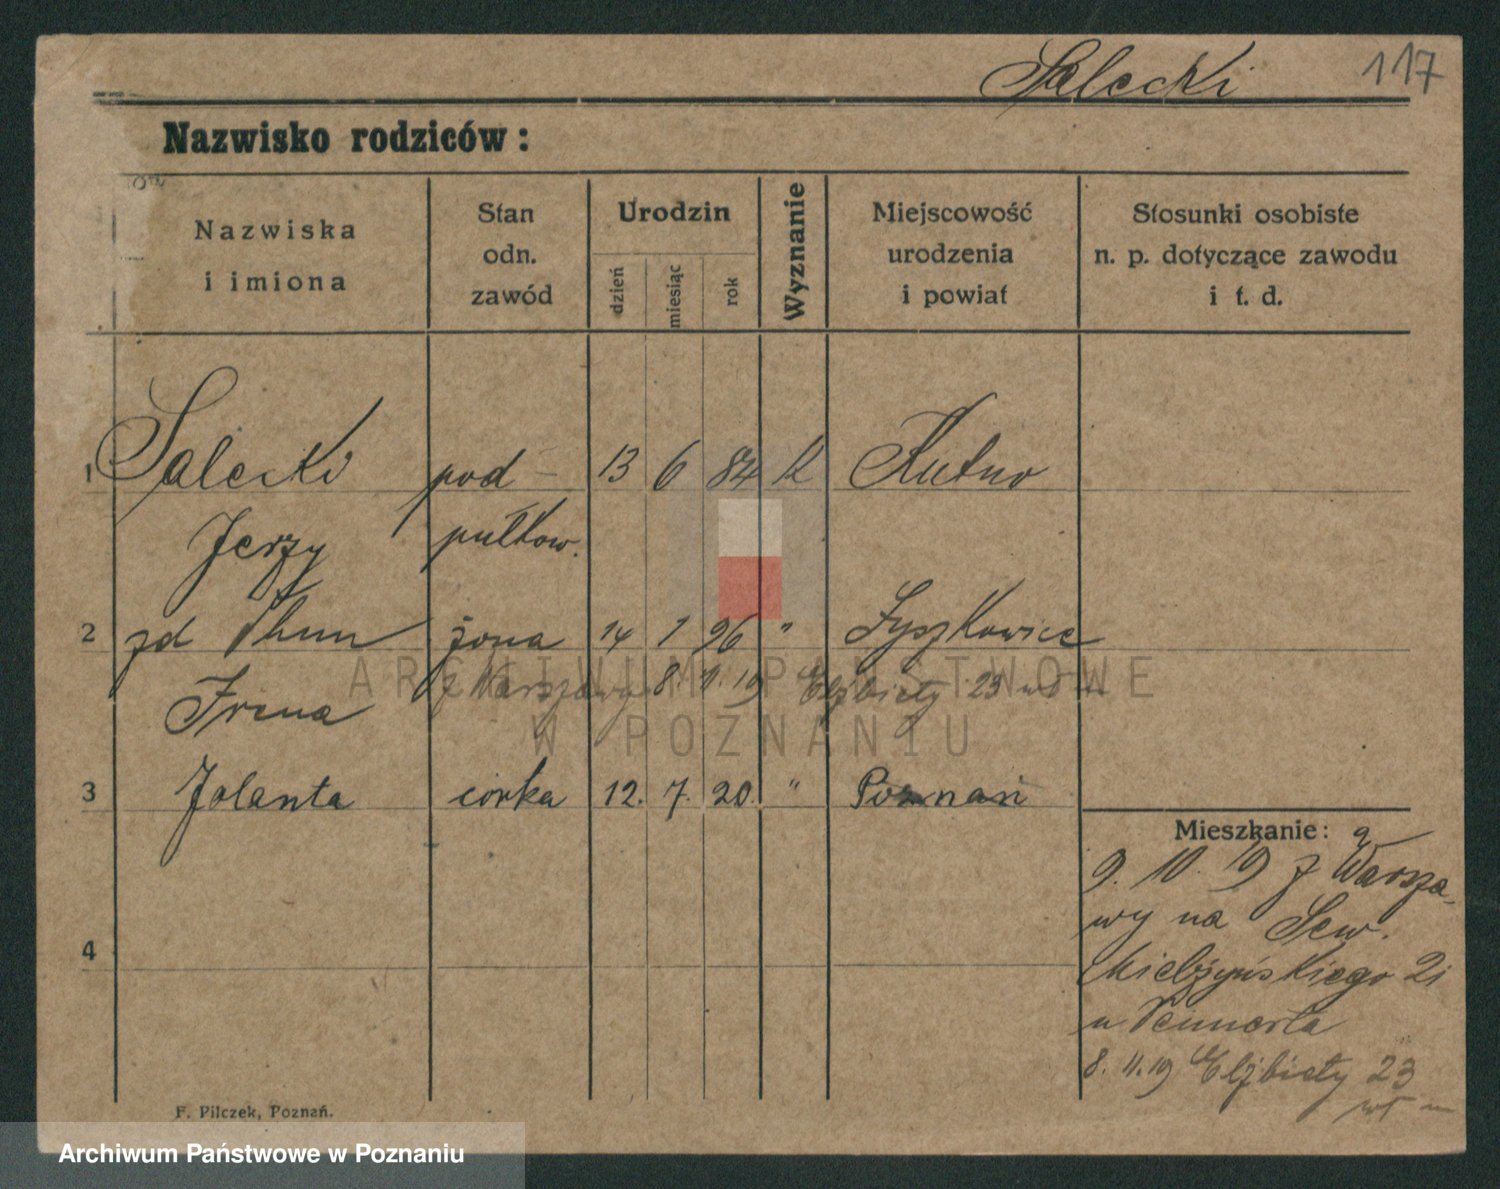 Salecki 117
Nazwisko rodziców:
Nazwiska
i imiona
Stan
odn.
zawód
Urodzin
dzień
miesiąc
rok
Wyznanie
Miejscowość
urodzenia
i powiat
Stosunki osobiste
n. p. dotyczące zawodu
i t. d.
1 Salecki pod- 13 6 84 k Kutno
Jerzy pułkow.
2 zd Thun żona 14 1 96 " Łyszkowice
z Warszawy 8. 11. 19 Elżbiety 23 wł m
Irena
3 Jolanta córka 12. 7. 20. " Poznań
Mieszkanie:
9. 10. 19 z Warsza-
wy na Sew.
Mielżyńskiego 21
u
8. 11. 19 Elżbiety 23
wł m
4
F. Pilczek, Poznań.
ARCHIWUM PAŃSTWOWE
W POZNANIU
Archiwum Państwowe w Poznaniu